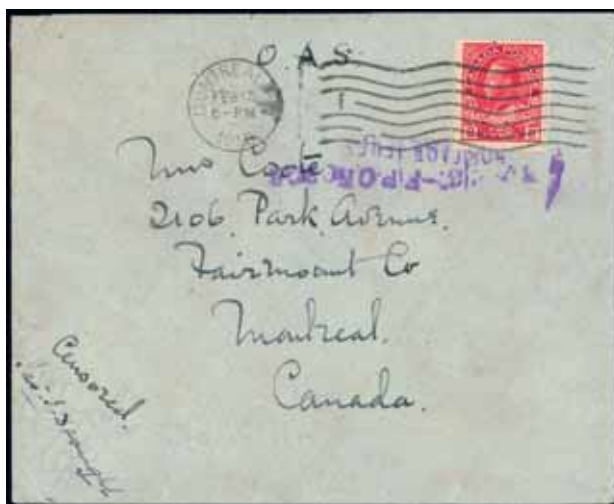 O.A.S.
MONTREAL
FEB
6-PM
1
Mrs Coote
2106. Park Avenue.
Fairmount Co
Montreal.
Canada.
Censored.